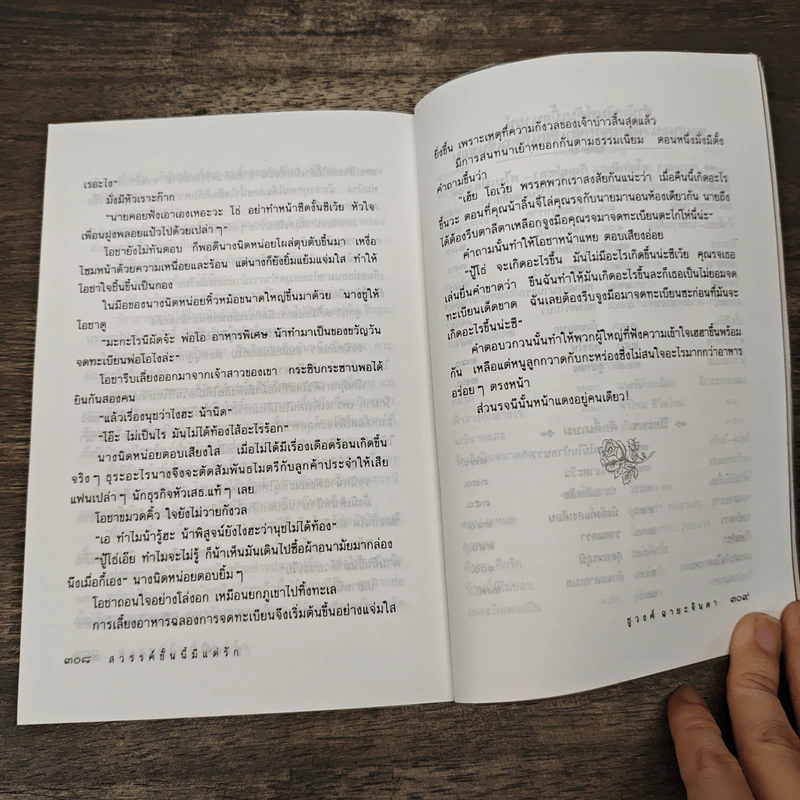 เรอะไง"
มั่งมีหัวเราะก๊าก
"นายคอยฟังเอาเองเหอะวะ โธ่ อย่าทำหน้าซีดงั้นซีเว้ย หัวใจ
เพื่อนฝูงพลอยแป้วไปด้วยเปล่า ๆ"
โอชายังไม่ทันตอบ ก็พอดีนางนิดหน่อยโผล่ตุบตับขึ้นมา เหงื่อ
โซมหน้าด้วยความเหนื่อยและร้อน แต่นางก็ยังยิ้มแย้มแจ่มใส ทำให้
โอชาใจชื้นขึ้นเป็นกอง
ในมือของนางนิดหน่อยหิ้วหม้อขนาดใหญ่ขึ้นมาด้วย นางชูให้
โอชาดู
"มะกะโรนีผัดจ้ะ พ่อโอ อาหารพิเศษ น้าทำมาเป็นของขวัญวัน
จดทะเบียนพ่อโอไงล่ะ"
โอชารีบเลี่ยงออกมาจากเจ้าสาวของเขา กระซิบกระซาบพอได้
ยินกันสองคน
"แล้วเรื่องนุชว่าไงฮะ น้านิด"
"โอ๊ะ ไม่เป็นไร มันไม่ได้ท้องไส้อะไรร้อก"
นางนิดหน่อยตอบเสียงใส เมื่อไม่ได้มีเรื่องเดือดร้อนเกิดขึ้น
จริง ๆ ธุระอะไรนางจึงจะตัดสัมพันธไมตรีกับลูกค้าประจำให้เสีย
แฟนเปล่า ๆ นักธุรกิจหัวเสธ.แท้ ๆ เลย
โอชาขมวดคิ้ว ใจยังไม่วายกังวล
"เอ ทำไมน้ารู้ฮะ น้าพิสูจน์ยังไงฮะว่านุชไม่ได้ท้อง"
"ปู้โธ่เอ๊ย ทำไมจะไม่รู้ ก็น้าเห็นมันเดินไปซื้อผ้าอนามัยมากล่อง
นึงเมื่อกี้เอง" นางนิดหน่อยตอบยิ้ม ๆ
โอชาถอนใจอย่างโล่งอก เหมือนยกภูเขาไปทิ้งทะเล
การเลี้ยงอาหารฉลองการจดทะเบียนจึงเริ่มต้นขึ้นอย่างแจ่มใส
๓๐๘ สวรรค์ชั้นนี้มีแต่รัก
ยิ่งขึ้น เพราะเหตุที่ความกังวลของเจ้าบ่าวสิ้นสุดแล้ว
มีการสนทนาเย้าหยอกกันตามธรรมเนียม ตอนหนึ่งมั่งมีตั้ง
คำถามขึ้นว่า
"เฮ้ย โอเว้ย พรรคพวกเราสงสัยกันแน่ะว่า เมื่อคืนนี้เกิดอะไร
ขึ้นวะ ตอนที่คุณน้าลิ้นจี่ไล่คุณรจกับนายมานอนห้องเดียวกัน นายถึง
ได้ต้องรีบตาลีตาเหลือกจูงมือคุณรจมาจดทะเบียนตะโก้ไห้นี่น่ะ"
คำถามนั้นทำให้โอชาหน้าแหย ตอบเสียงอ่อย
"ปู้โธ่ จะเกิดอะไรขึ้น มันไม่มีอะไรเกิดขึ้นน่ะซีเว้ย คุณรจเธอ
เล่นยื่นคำขาดว่า ขืนฉันทำให้มันเกิดอะไรขึ้นละก็เธอเป็นไม่ยอมจด
ทะเบียนเด็ดขาด ฉันเลยต้องรีบจูงมือมาจดทะเบียนซะก่อนที่มันจะ
เกิดอะไรขึ้นน่ะซี"
คำตอบวกวนนั้นทำให้พวกผู้ใหญ่ที่ฟังความเข้าใจเฮฮาขึ้นพร้อม
กัน เหลือแต่หนูลูกกวาดกับกะหร่องซึ่งไม่สนใจอะไรมากกว่าอาหาร
อร่อย ๆ ตรงหน้า
ส่วนรจนีนั้นหน้าแดงอยู่คนเดียว!
ชูวงศ์ ฉายะจินดา ๓๐๙